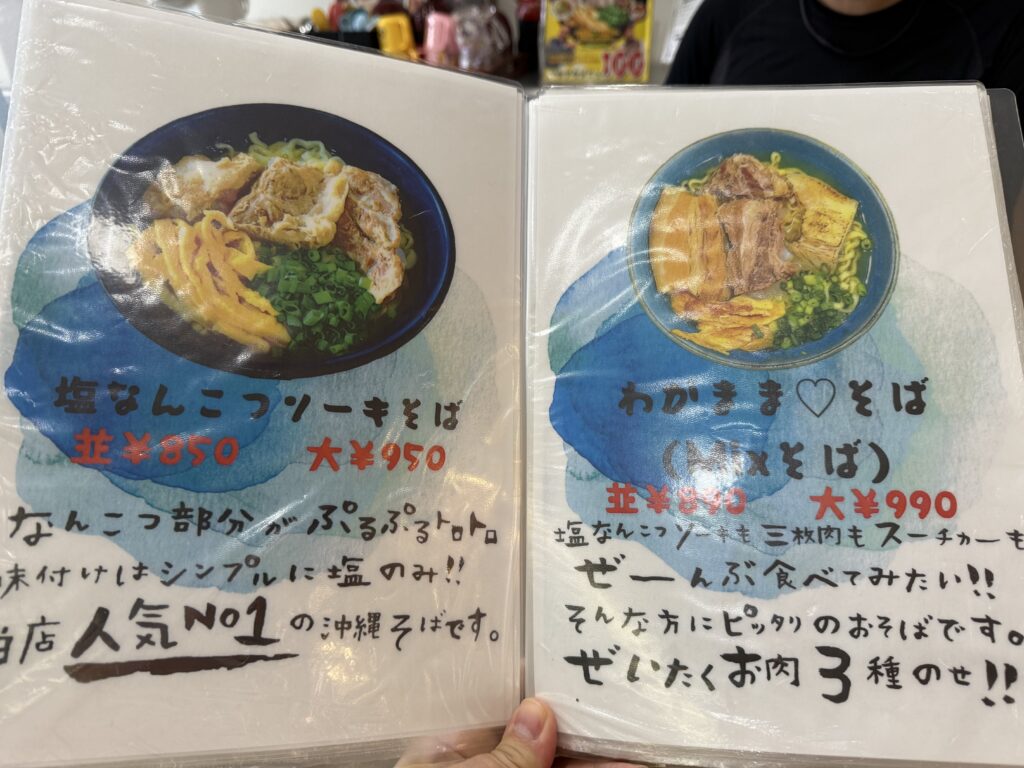 100
塩なんこつソーキそば
並¥850 大¥950
なんこつ部分がぷるぷるトロトロ
味付けはシンプルに塩のみ!!
当店人気No1の沖縄そばです。
わがまま♡そば
(Mixそば)
並¥890 大¥990
塩なんこつソーキも三枚肉もスーチカーも
ぜーんぶ食べてみたい!!
そんな方にピッタリのおそばです。
ぜいたくお肉3種のせ!!